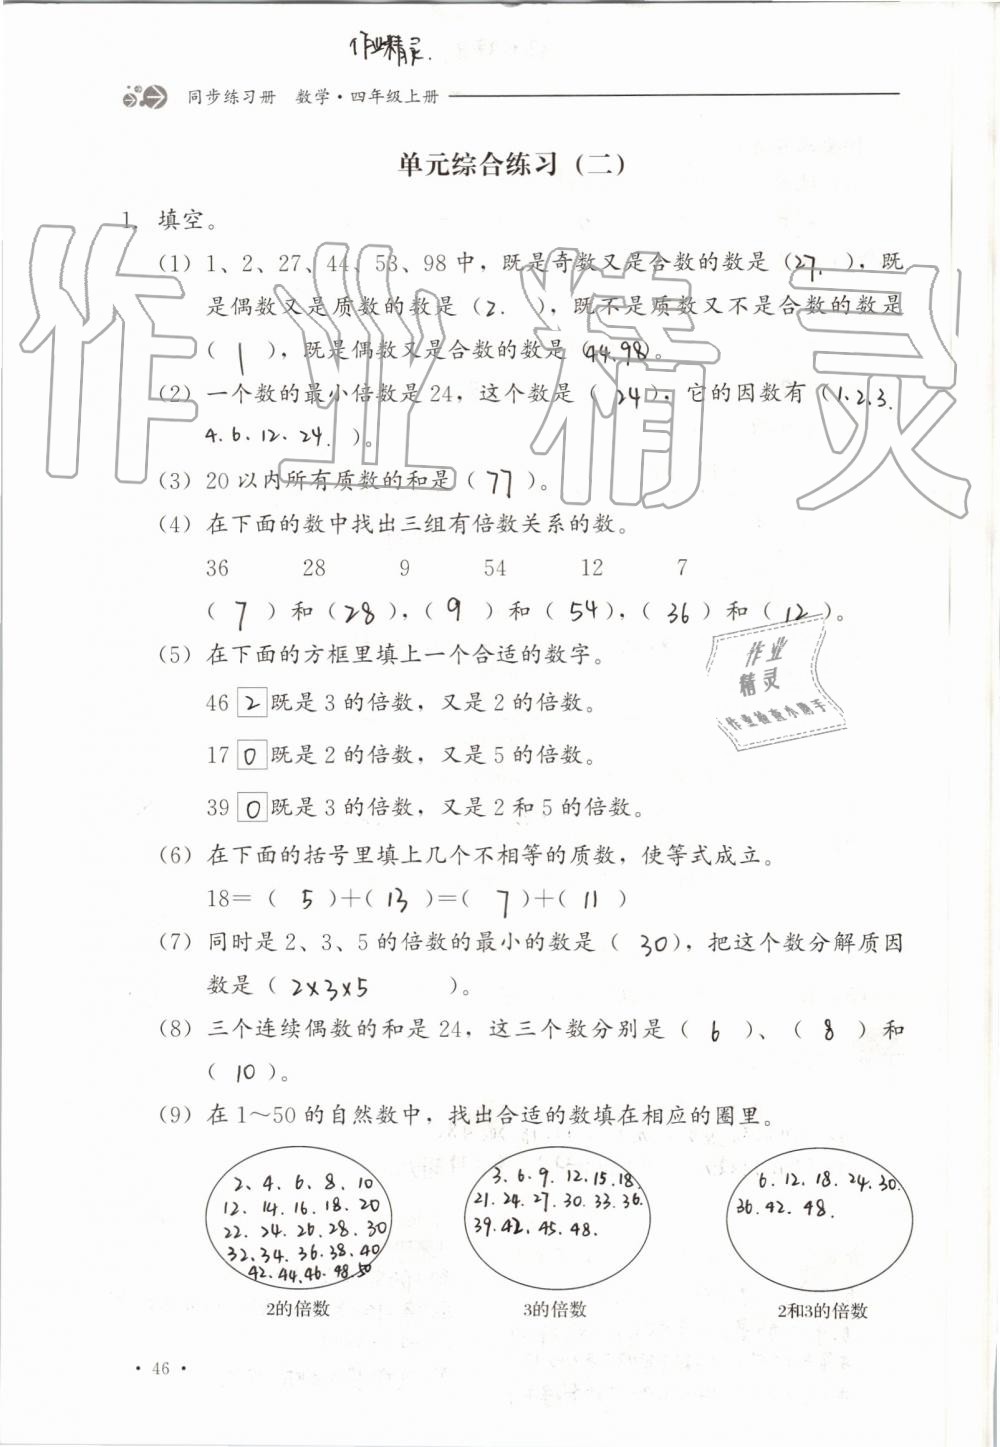 作业精灵.
同步练习册 数学·四年级上册
单元综合练习（二）
1. 填空。
（1）1、2、27、44、53、98中，既是奇数又是合数的数是（27. ），既
是偶数又是质数的数是（2. ），既不是质数又不是合数的数是
（ 1 ），既是偶数又是合数的数是（44.98）。
（2）一个数的最小倍数是24，这个数是（ 24 ），它的因数有（1.2.3.
4.6.12.24. ）。
（3）20以内所有质数的和是（ 77 ）。
（4）在下面的数中找出三组有倍数关系的数。
36 28 9 54 12 7
（ 7 ）和（ 28 ），（ 9 ）和（ 54 ），（ 36 ）和（ 12 ）。
（5）在下面的方框里填上一个合适的数字。
46 2 既是3的倍数，又是2的倍数。
17 0 既是2的倍数，又是5的倍数。
39 0 既是3的倍数，又是2和5的倍数。
（6）在下面的括号里填上几个不相等的质数，使等式成立。
18=（ 5 ）+（ 13 ）=（ 7 ）+（ 11 ）
（7）同时是2、3、5的倍数的最小的数是（ 30 ），把这个数分解质因
数是（ 2×3×5 ）。
（8）三个连续偶数的和是24，这三个数分别是（ 6 ）、（ 8 ）和
（ 10 ）。
（9）在1～50的自然数中，找出合适的数填在相应的圈里。
2、4、6、8、10
12、14、16、18、20
22、24、26、28、30
32、34、36、38、40
42、44、46、48、50
2的倍数
3.6.9.12.15.18.
21.24.27.30.33.36.
39.42.45.48.
3的倍数
6.12.18.24.30.
36.42.48.
2和3的倍数
· 46 ·
作业精灵
作业
精灵
作业检查小助手